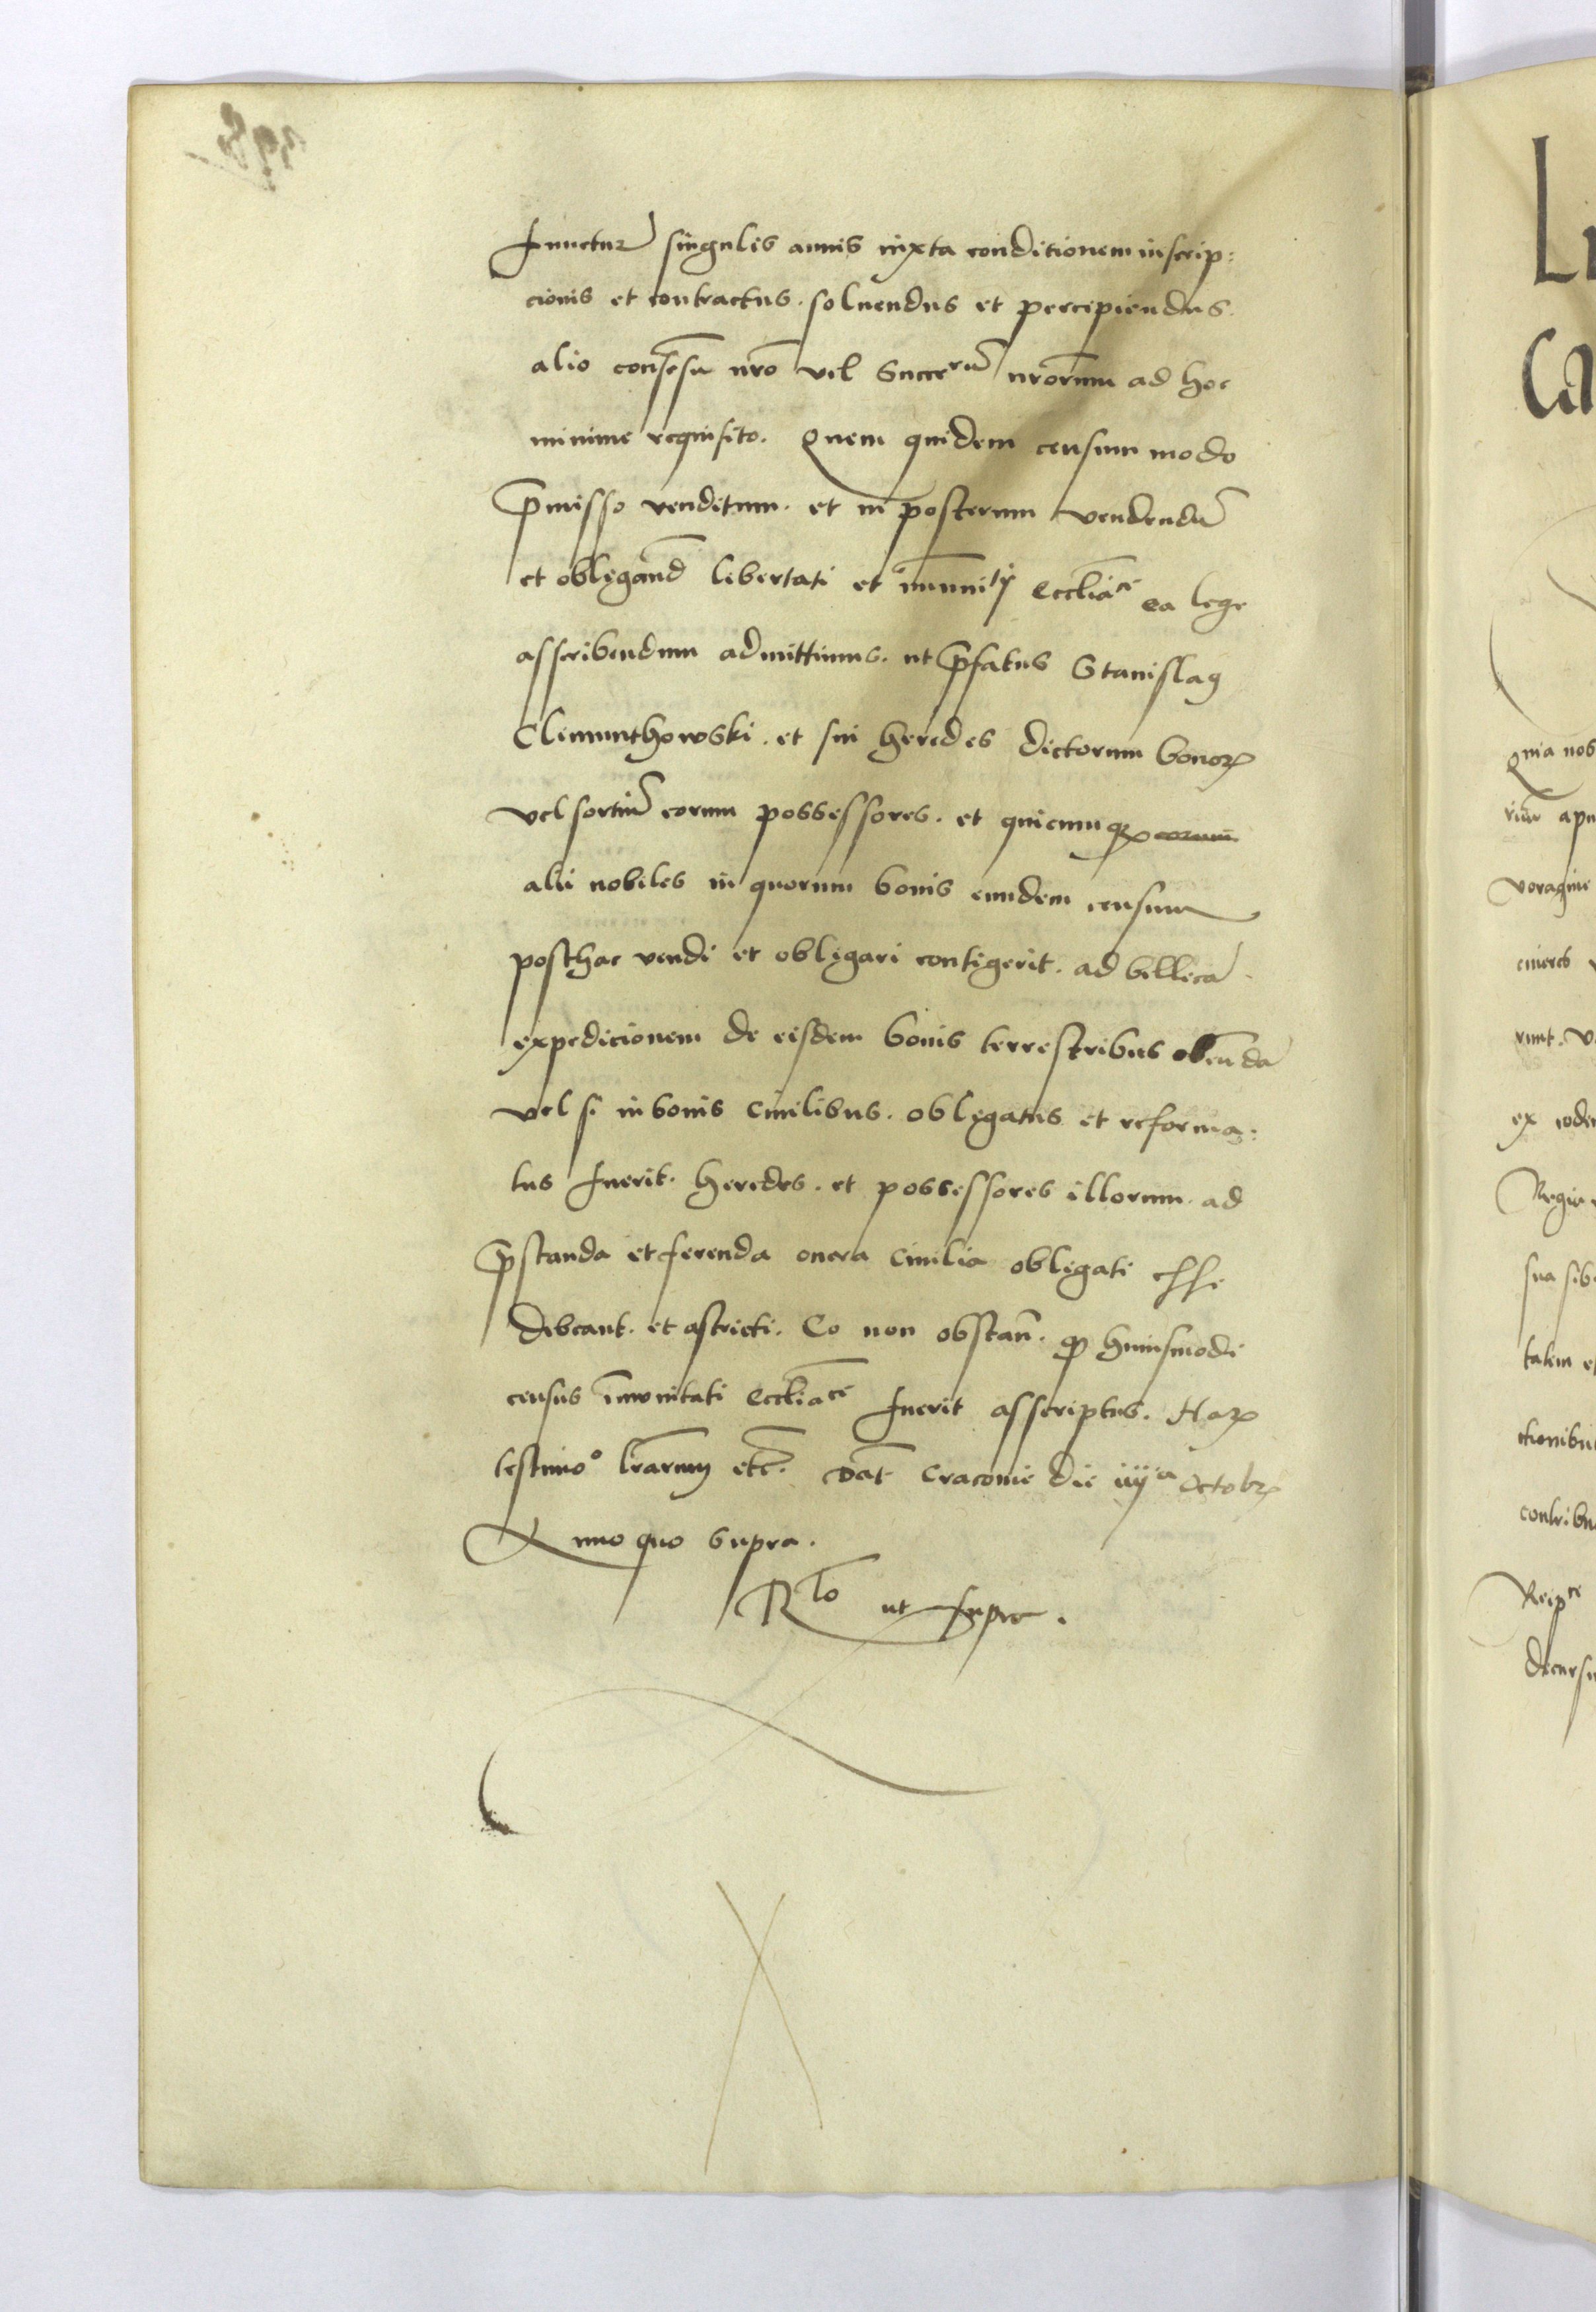 functur singulis annis iuxta conditionem inscrip:
cionis et contractus. soluendus et percipiendus.
alio consēsu nrō vel Succerū nrōrum ad hoc
minime requisito. Quem quidem censum modo
p̄misso venditum. et in posterum vendendū
et obligand̄ libertati et im̄unitīj Eccliāce ea lege
asscribendum admittimus. ut p̄fatus Stanislaꝯ
Clemunthowski. et sui heredes dictorum bonoꝝ
vel sortiū eorum possessores. et quicumqꝫ eorum
alii nobiles in quorum bonis eundem censum
posthac vendi et obligari contigerit. ad bellicā
expedicionem de eisdem bonis terrestribus obeūndā
vel si in bonis Ciuilibus. obligatus et reforma:
tus fuerit. heredes. et possessores illorum. ad
p̄standa et ferenda onera Ciuilia obligati esse
debeant. et astricti. Eo non obstan̄. ꝙ huiusmodi
census im̄unitati Eccliāce fuerit asscriptus. Haꝝ
testimoº lrārum etc̄. Dat̄ Cracouie die iiija Octobꝝ
Anno quo supra.
Rlō ut supra.
Li
Ca
Quia nos
riūr apu
voragine
cineres
runt. v
ex eode
Regia
sua sib
talem e
ctionibu
contribu
Reipce
decursu